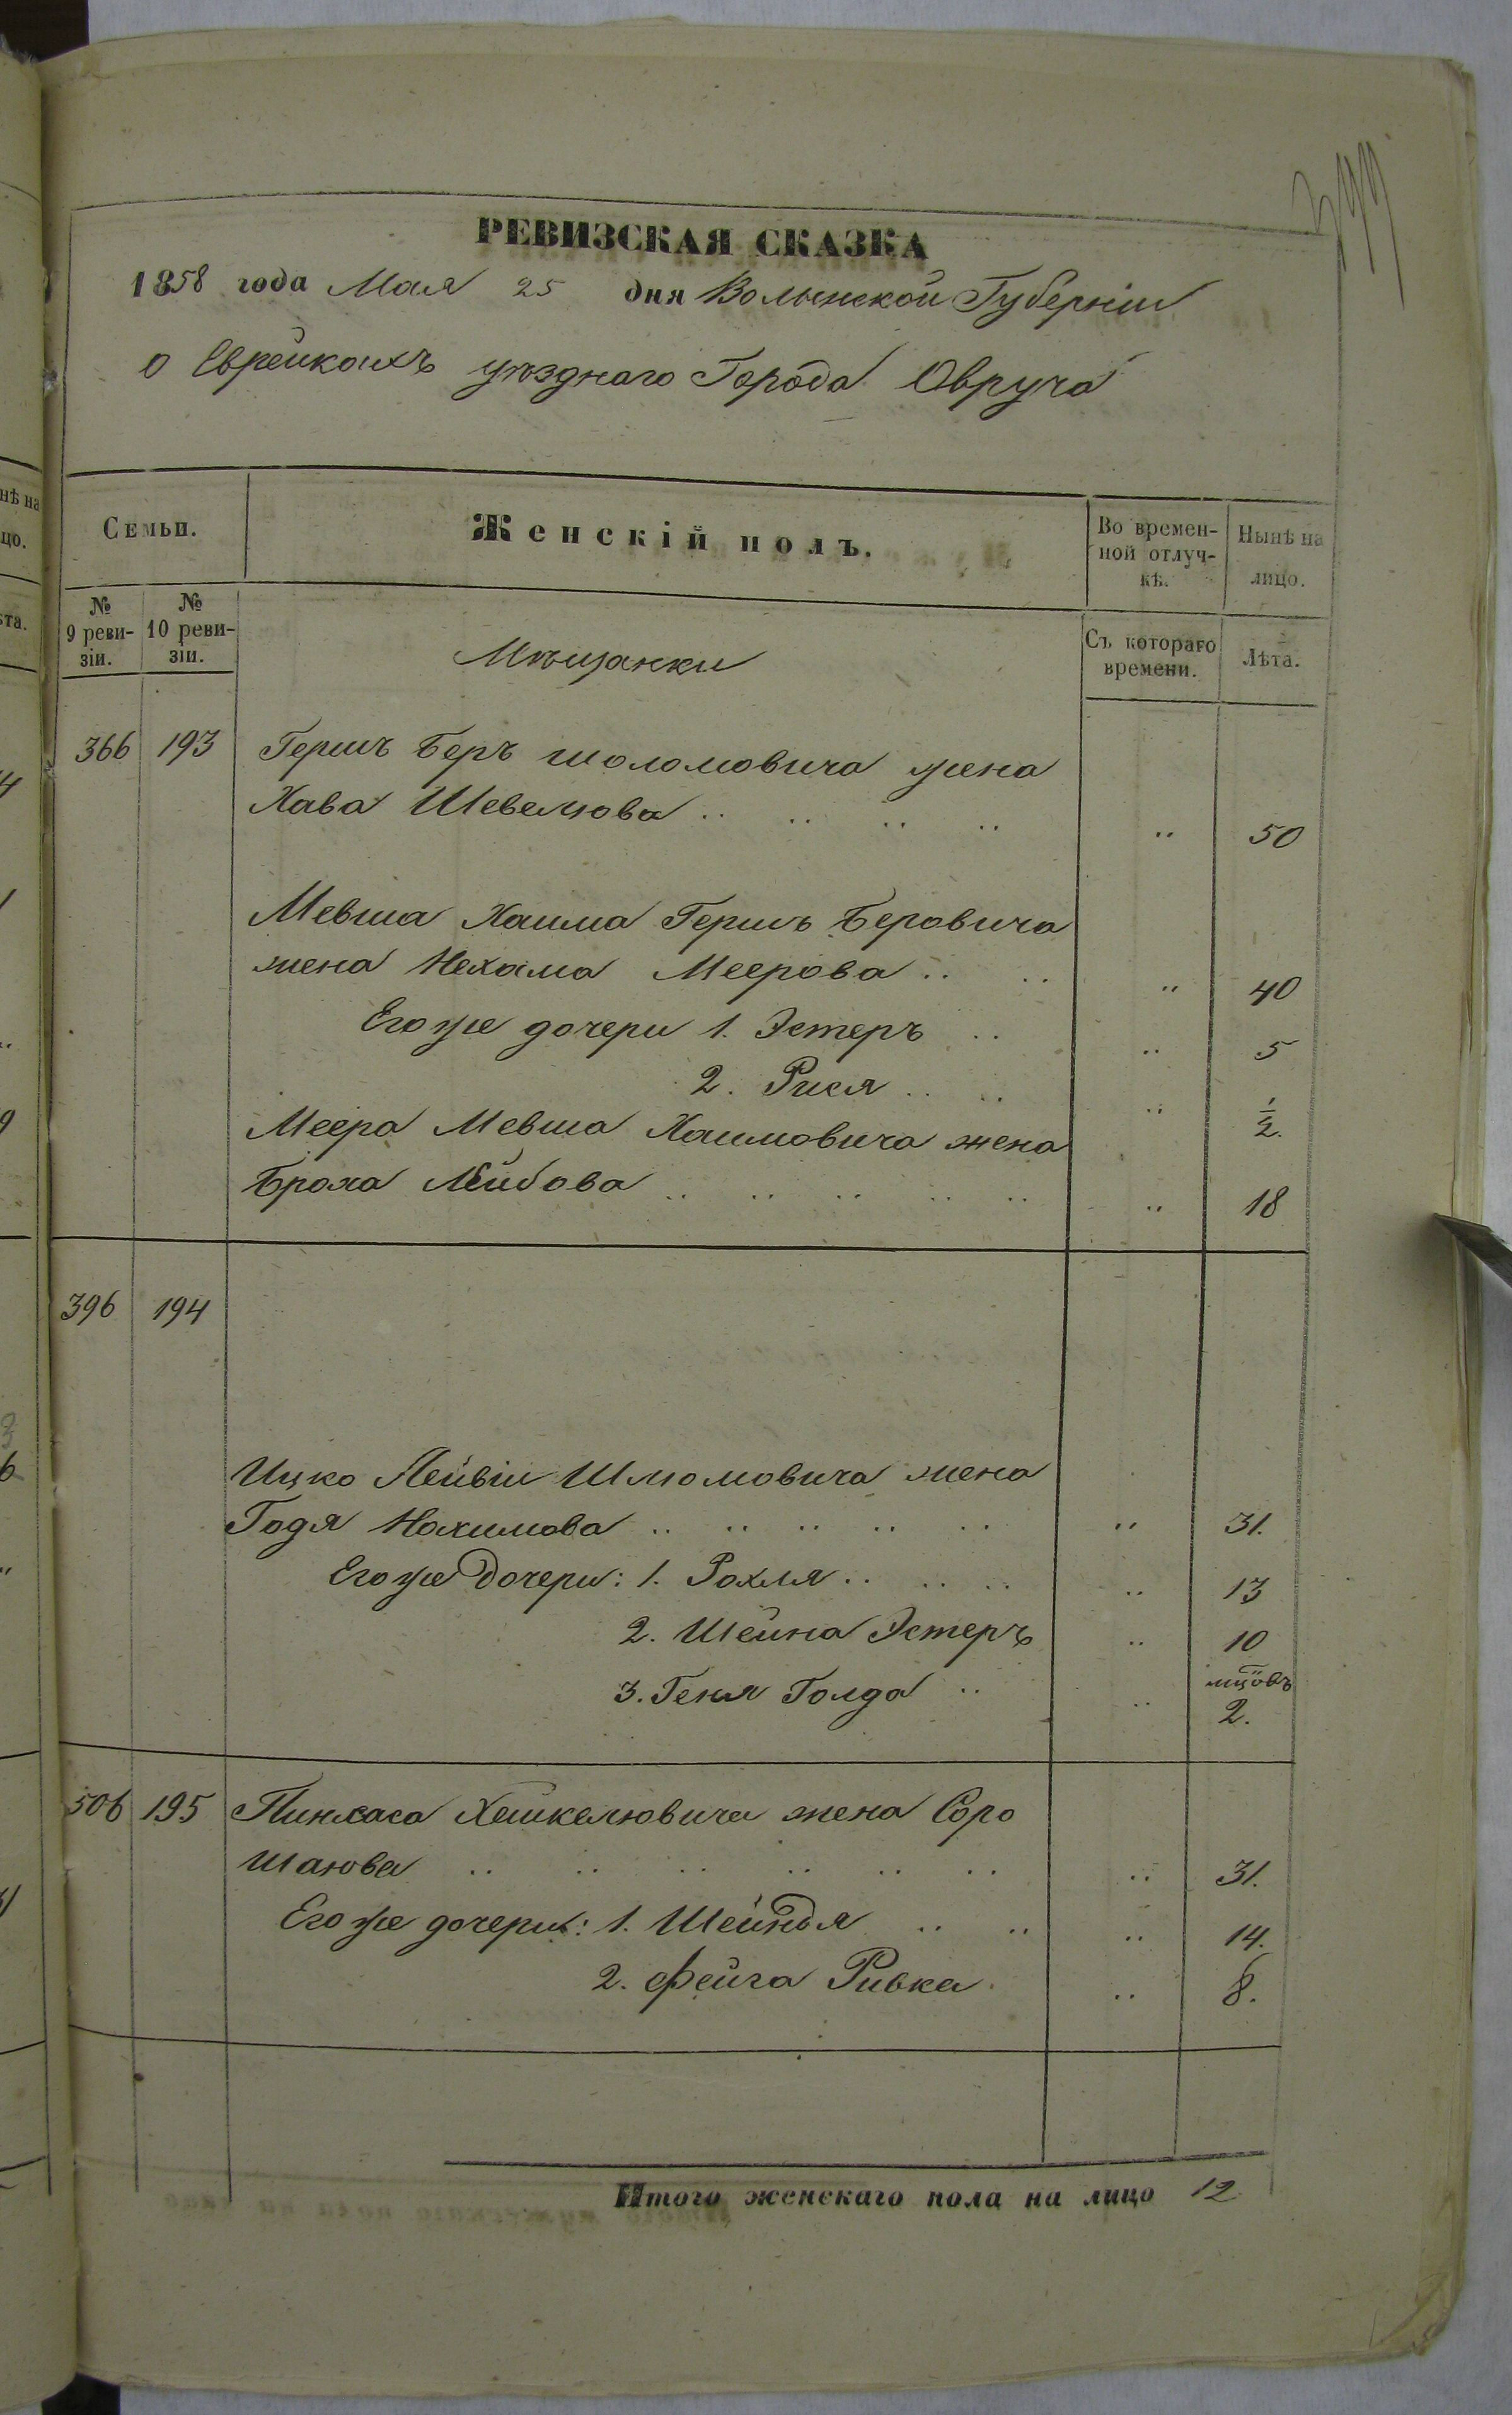 РЕВИЗСКАЯ СКАЗКА
1858 года Мая 25 дня Волынской Губерніи
о Еврейкахъ уѣзднаго Города Овруча
Семьи.
Женскій полъ.
Во времен-
ной отлуч-
кѣ.
Нынѣ на
лицо.
№
9 реви-
зіи.
№
10 реви-
зіи.
Мѣщанки
Съ котораго
времени.
Лѣта.
366 193 Гершъ Беръ Шоломовича жена
Хава Шевелюва .. .. .. .. .. 50
Мевша Хаима Гершъ Беровича
жена Нехама Меерова .. .. .. 40
Его же дочери 1. Эстеръ .. .. 5
2. Рися .. .. .. 1/2.
Меера Мевша Хаимовича жена
Броха Лейбова .. .. .. .. .. .. 18
396 194
Ицко Лейвіи Шлюмовича жена
Годя Нохимова .. .. .. .. .. .. 31.
Его же Дочери: 1. Рохля .. .. .. .. 13
2. Шейна Эстеръ .. 10
3. Геня Голда .. .. мцовъ
2.
506 195 Пинхаса Хешкелювича жена Соро
Шаюва .. .. .. .. .. .. .. 31.
Его же дочери: 1. Шейндя .. .. .. 14.
2. Фейга Ривка .. 8.
Итого женскаго пола на лицо 12